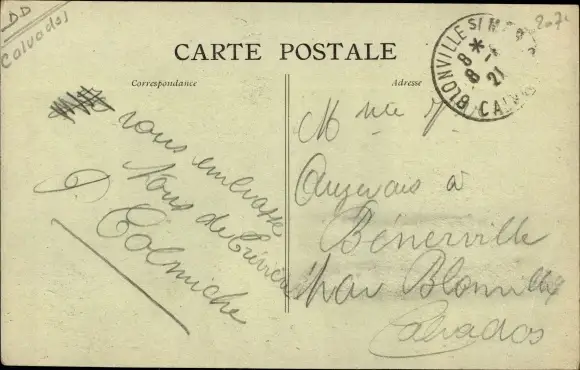 DD
Calvados
207
CARTE POSTALE
Correspondance
Adresse
BLONVILLE S/ MER
8 *
8 21
CALVADOS
vous embrasse
Nous de
P. Colmiche
Mme
Auservais à
Bénerville
par Blonville
Calvados